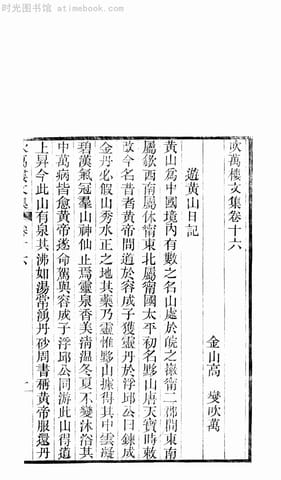 时光图书馆 atimebook.com
吹萬樓文集卷十六
金山高 燮吹萬
遊黃山日記
黃山爲中國境內有數之名山處於皖之徽甯二郡間東南
屬歙西南屬休甯東北屬甯國太平初名黟山唐天寶時敕
改今名昔者黃帝問道於容成子獲靈丹於浮邱公曰鍊成
金丹必假山秀水正之地其藥乃靈惟黟山據得其中雲凝
碧漢氣冠羣山神仙止焉靈泉香美清溫冬夏不變沐浴其
中萬病皆愈黃帝遂命駕與容成子浮邱公同游此山得道
上昇今此山有泉其沸如湯常湧丹砂周書稱黃帝服還丹
吹萬樓文集 卷十六 一